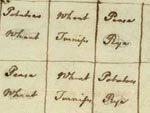 Potatoes Wheat Pease
Wheat Turnips Rye
Pease Wheat Potatoes
Wheat Turnips Rye